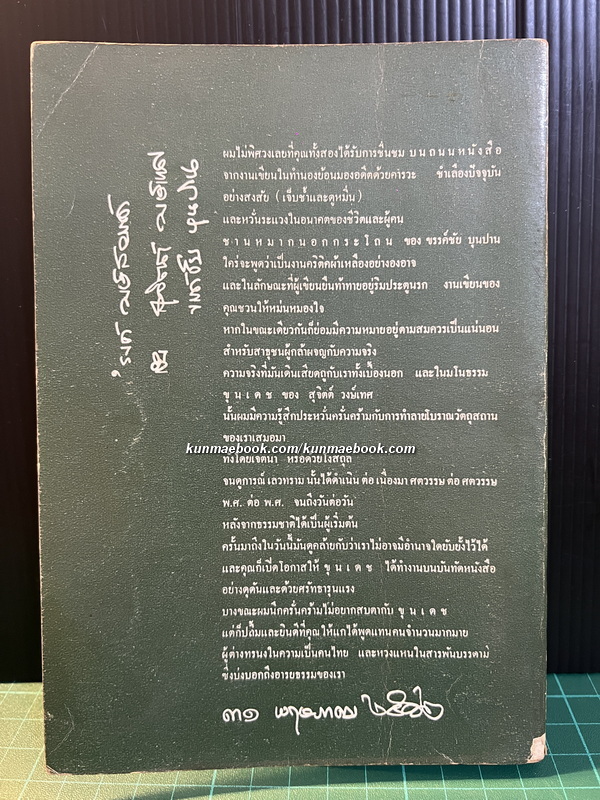 ผมไม่พิศวงเลยที่คุณทั้งสองได้รับการชื่นชม บนถนนหนังสือ
จากงานเขียนในทำนองย้อนมองอดีตด้วยคารวะ ชำเลืองปัจจุบัน
อย่างสงสัย (เจ็บช้ำและดูหมิ่น)
และหวั่นระแวงในอนาคตของชีวิตและผู้คน
ชานหมากนอกกระโถน ของ ขรรค์ชัย บุนปาน
ใคร่จะพูดว่าเป็นงานคริติคผ้าเหลืองอย่างองอาจ
และในลักษณะที่ผู้เขียนยืนท้าทายอยู่ริมประตูนรก งานเขียนของ
คุณชวนให้หม่นหมองใจ
หากในขณะเดียวกันก็ย่อมมีความหมายอยู่ตามสมควรเป็นแน่นอน
สำหรับสาธุชนผู้กล้าผจญกับความจริง
ความจริงที่มันเดินเสียดถูกับเราทั้งเบื้องนอก และในมโนธรรม
ขุนเดช ของ สุจิตต์ วงษ์เทศ
นั้นผมมีความรู้สึกประหวั่นครั่นคร้ามกับการทำลายโบราณวัตถุสถาน
ของเราเสมอมา
kunmaebook.com/kunmaebook.com
ทั้งโดยเจตนา หรือด้วยไร้สกุล
จนดูการณ์เลวทราม นั้นได้ดำเนิน ต่อ เนื่องมา ศตวรรษ ต่อ ศตวรรษ
พ.ศ. ต่อ พ.ศ. จนถึงวันต่อวัน
หลังจากธรรมชาติได้เป็นผู้เริ่มต้น
ครั้นมาถึงในวันนี้มันดูคล้ายกับว่าเราไม่อาจมีอำนาจใดยับยั้งไว้ได้
และคุณก็เปิดโอกาสให้ ขุนเดช ได้ทำงานบนบันทัดหนังสือ
อย่างดุดันและด้วยศรัทธารุนแรง
บางขณะผมนึกครั่นคร้ามไม่อยากสบตากับ ขุนเดช
แต่ก็ปลื้มและยินดีที่คุณให้แกได้พูดแทนคนจำนวนมากมาย
ผู้ต่างทรนงในความเป็นคนไทย และหวงแหนในสารพันบรรดามี
ซึ่งบ่งบอกถึงอารยธรรมของเรา
๓๑ พฤษภาคม ๒๕๑๒
'รงค์ วงษ์สวรรค์
สุจิตต์ วงษ์เทศ
ขรรค์ชัย บุนปาน